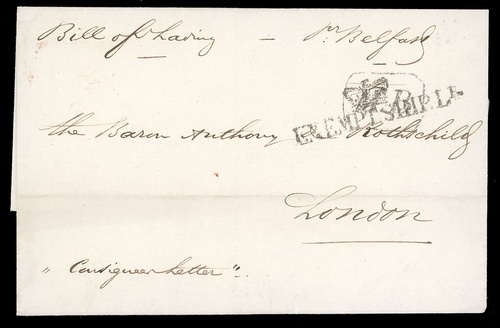 Bill of Lading — pr Belfast
EXEMPT SHIP LR
the Baron Anthony Rothschild
London
"Consignees Letter".